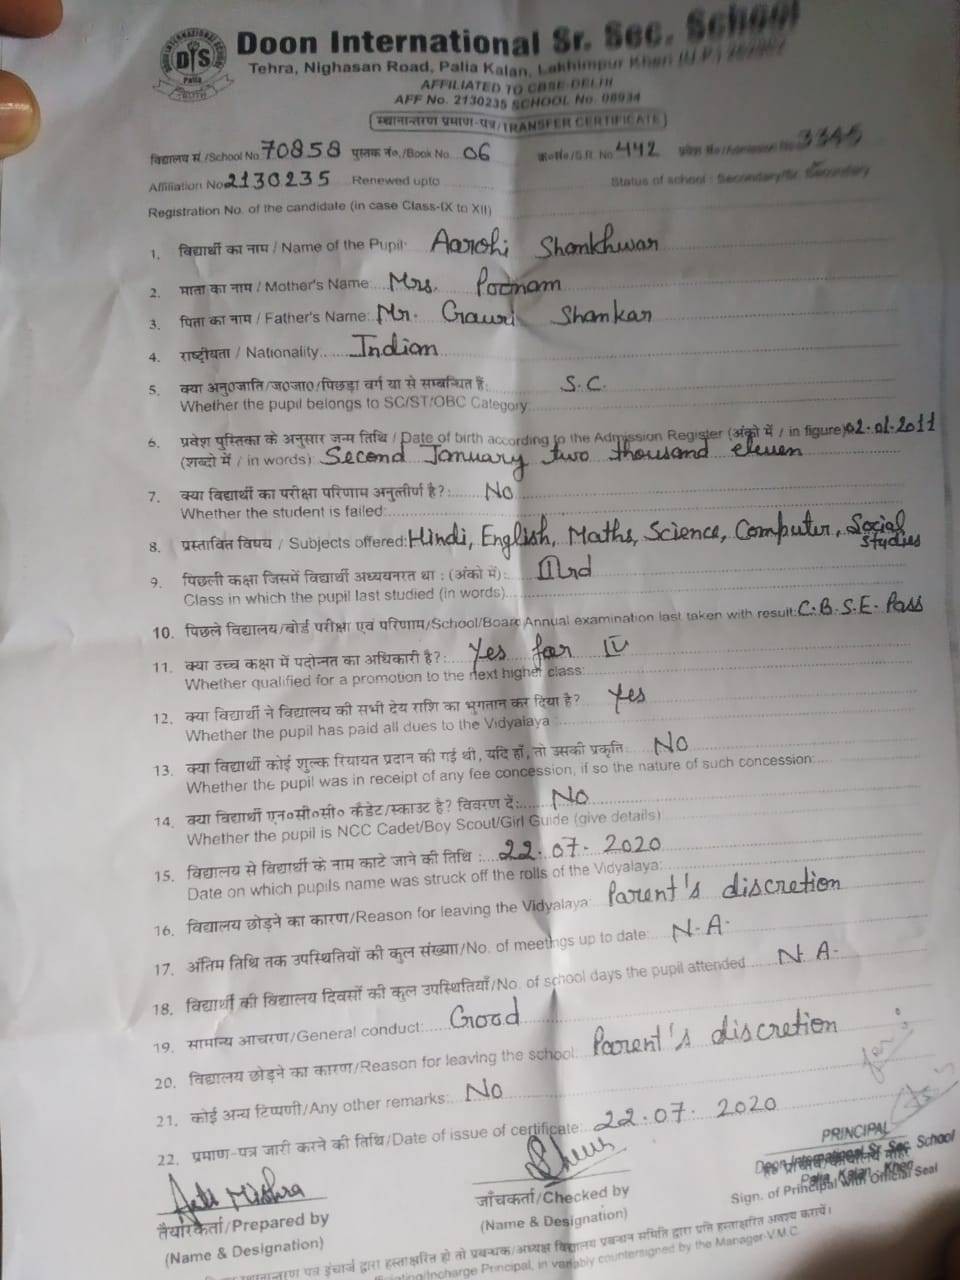 DIS
Palia
Doon International Sr. Sec. School
Tehra, Nighasan Road, Palia Kalan, Lakhimpur Kheri (U.P.)
AFFILIATED TO CBSE DELHI
AFF No. 2130235 SCHOOL No. 08934
स्थानान्तरण प्रमाण-पत्र/TRANSFER CERTIFICATE
विद्यालय सं./School No. 70858 पुस्तक नं०./Book No. 06 क्र०सं०/S.R. No. 442 प्रवेश सं०/Admission No. 3345
Affiliation No. 2130235 Renewed upto Status of school : Secondary/Sr. Secondary
Registration No. of the candidate (in case Class-IX to XII)
1. विद्यार्थी का नाम / Name of the Pupil: Aarohi Shankhwar
2. माता का नाम / Mother's Name: Mrs. Poonam
3. पिता का नाम / Father's Name: Mr. Gauri Shankar
4. राष्ट्रीयता / Nationality Indian
5. क्या अनु०जाति/ज०जा०/पिछड़ा वर्ग या से सम्बन्धित हैं: S.C.
Whether the pupil belongs to SC/ST/OBC Category:
6. प्रवेश पुस्तिका के अनुसार जन्म तिथि / Date of birth according to the Admission Register (अंको में / in figure) 02.01.2011
(शब्दो में / in words) Second January two thousand eleven
7. क्या विद्यार्थी का परीक्षा परिणाम अनुत्तीर्ण है?: No
Whether the student is failed:
8. प्रस्तावित विषय / Subjects offered: Hindi, English, Maths, Science, Computer, Social Studies
9. पिछली कक्षा जिसमें विद्यार्थी अध्ययनरत था : (अंको में): IIIrd
Class in which the pupil last studied (in words)
10. पिछले विद्यालय/बोर्ड परीक्षा एवं परिणाम/School/Board Annual examination last taken with result: C.B.S.E. Pass
11. क्या उच्च कक्षा में पदोन्नत का अधिकारी है?: Yes for IV
Whether qualified for a promotion to the next higher class:
12. क्या विद्यार्थी ने विद्यालय की सभी देय राशि का भुगतान कर दिया है? Yes
Whether the pupil has paid all dues to the Vidyalaya :
13. क्या विद्यार्थी कोई शुल्क रियायत प्रदान की गई थी, यदि हाँ, तो उसकी प्रकृति: No
Whether the pupil was in receipt of any fee concession, if so the nature of such concession:
14. क्या विद्यार्थी एन०सी०सी० कैडेट/स्काउट है? विवरण दें: No
Whether the pupil is NCC Cadet/Boy Scout/Girl Guide (give details)
15. विद्यालय से विद्यार्थी के नाम काटे जाने की तिथि : 22.07.2020
Date on which pupils name was struck off the rolls of the Vidyalaya:
16. विद्यालय छोड़ने का कारण/Reason for leaving the Vidyalaya: Parent's discretion
17. अंतिम तिथि तक उपस्थितियों की कुल संख्या/No. of meetings up to date: N.A.
18. विद्यार्थी की विद्यालय दिवसों की कुल उपस्थितियाँ/No. of school days the pupil attended N.A.
19. सामान्य आचरण/General conduct: Good
20. विद्यालय छोड़ने का कारण/Reason for leaving the school: Parent's discretion
21. कोई अन्य टिप्पणी/Any other remarks: No
22. प्रमाण-पत्र जारी करने की तिथि/Date of issue of certificate: 22.07.2020
for
PRINCIPAL
Doon International Sr. Sec. School
Palia Kalan, Kheri
Mishra
तैयारकर्ता/Prepared by
(Name & Designation)
जाँचकर्ता/Checked by
(Name & Designation)
Sign. of Principal with Official Seal
स्थानान्तरण पत्र इंचार्ज द्वारा हस्ताक्षरित हो तो प्रबन्धक/अध्यक्ष विद्यालय प्रबन्धन समिति द्वारा प्रति हस्ताक्षरित अवश्य करायें।
Incharge Principal, in variably countersigned by the Manager-V.M.C.